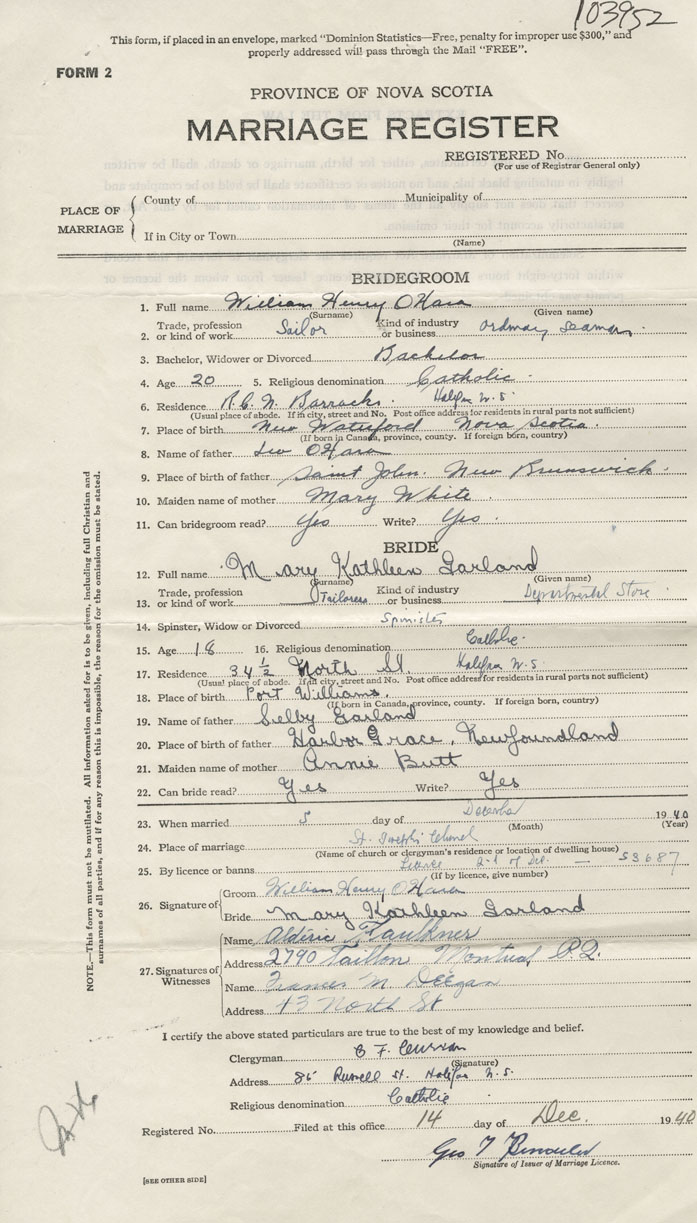 103952
This form, if placed in an envelope, marked "Dominion Statistics—Free, penalty for improper use $300," and
properly addressed will pass through the Mail "FREE".
FORM 2
PROVINCE OF NOVA SCOTIA
MARRIAGE REGISTER
REGISTERED No.
(For use of Registrar General only)
PLACE OF MARRIAGE
County of Municipality of
If in City or Town
(Name)
BRIDEGROOM
1. Full name William Henry O'Hara
(Surname) (Given name)
2. Trade, profession or kind of work Sailor Kind of industry or business Ordinary Seaman
3. Bachelor, Widower or Divorced Bachelor
4. Age 20 5. Religious denomination Catholic
6. Residence R.C.N. Barracks. Halifax N.S.
(Usual place of abode. If in city, street and No. Post office address for residents in rural parts not sufficient)
7. Place of birth New Waterford Nova Scotia.
(If born in Canada, province, county. If foreign born, country)
8. Name of father Leo O'Hara
9. Place of birth of father Saint John. New Brunswick.
10. Maiden name of mother Mary White
11. Can bridegroom read? Yes Write? Yes
BRIDE
12. Full name Mary Kathleen Garland
(Surname) (Given name)
13. Trade, profession or kind of work Tailoress Kind of industry or business Departmental Store
14. Spinster, Widow or Divorced Spinster
15. Age 18 16. Religious denomination Catholic
17. Residence 34 1/2 North St. Halifax N.S.
(Usual place of abode. If in city, street and No. Post office address for residents in rural parts not sufficient)
18. Place of birth Port Williams.
(If born in Canada, province, county. If foreign born, country)
19. Name of father Selby Garland
20. Place of birth of father Harbor Grace, Newfoundland
21. Maiden name of mother Annie Butt
22. Can bride read? Yes Write? Yes
23. When married 5 day of December 1940
(Month) (Year)
24. Place of marriage St. Joseph's
(Name of church or clergyman's residence or location of dwelling house)
25. By licence or banns Licence 2nd of Dec. — 53687
(If by licence, give number)
26. Signature of
Groom William Henry O'Hara
Bride Mary Kathleen Garland
27. Signatures of Witnesses
Name Faulkner
Address 2790 Taillon Montreal P.Q.
Name Frances M Deegan
Address 43 North St
I certify the above stated particulars are true to the best of my knowledge and belief.
Clergyman
(Signature)
Address 86 Russell St. Halifax N.S.
Religious denomination Catholic
Registered No. Filed at this office 14 day of Dec. 1940
Geo T
Signature of Issuer of Marriage Licence.
[SEE OTHER SIDE]
NOTE.—This form must not be mutilated. All information asked for is to be given, including full Christian and
surnames of all parties, and if for any reason this is impossible, the reason for the omission must be stated.